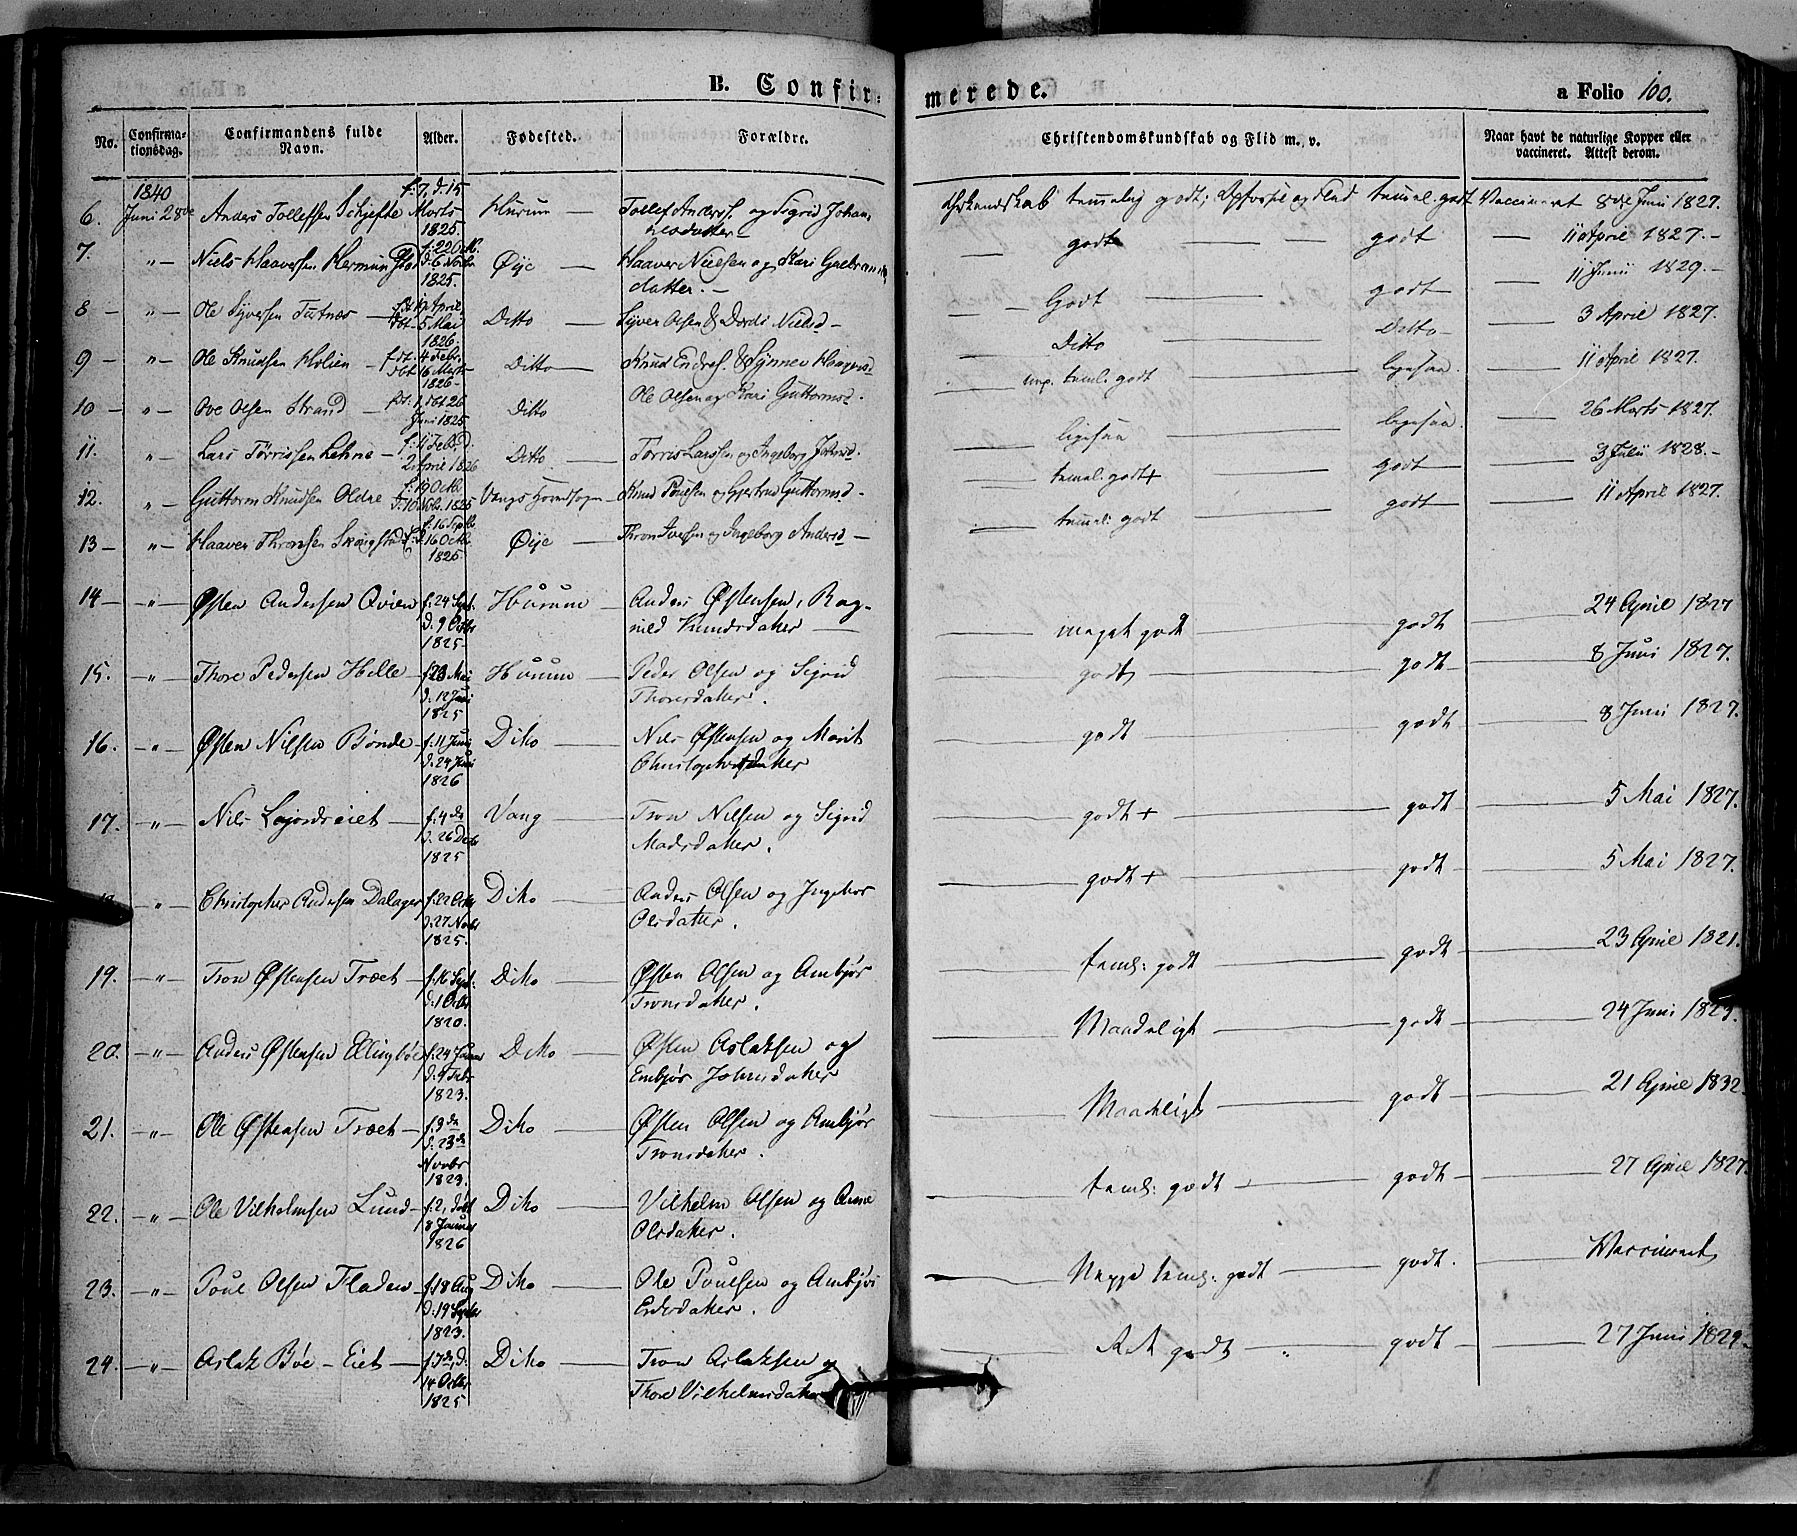 B. Confir-merede. a Folio 100.
No. Confirma-tionsdag. Confirmandens fulde Navn. Alder. Fødested. Forældre. Christendomskundskab og Flid m. v. Naar havt de naturlige Kopper eller vaccineret. Attest derom.
1840 f: 7, d. 15
6. Juni 28de Anders Tollefsen Marts Hurum — Tollef Anders. og Sigrid Johan- Kundskab temmelig godt; og Flid temmel. godt Vaccineret 8de Juni 1827.
1825. nesdatter —
7. " — Niels Haaversen Øije — Haaver Nielsen og Kari — godt — — godt — 11 April 1827. —
1825. datter. —
8 — " — Ole Syversen April Ditto — Syver Olsen & Nielsd — — Godt — godt — 11 Junii 1829. —
5 Mai
1826.
9 — " — Ole Knudsen 4 Febr. Ditto — Knud & — Ditto — Ditto — 3 April 1827.
16 Marts
1826 —
10 — " — Ove Olsen Strand — 26 Ditto Ole Olsen og Kari Guttormsd. — teml. godt — ligesaa. — 11 April 1827.
Juni 1825.
11. " Lars Torrissen — Febr. d. Ditto. Torris Larsen og Ingeborg — ligesaa — ligesaa. — 26 Marts 1827.
2 April 1826
12. " — Guttorm Knudsen Oldre 19 Octbr. Vangs — Knud og Gjertrud Guttormsd. — temml. godt + — godt — 3 Julii 1828. —
1825
13 — " — Haaver Thronsen f. 16 Septbr. Øije — Thron Iversen og Ingeborg Andersd — — temml. godt — godt — 11 April 1827.
16 Octbr.
1825
14 — " — Østen Andersen Qvien f. 24 Sept. Hurum — Anders Østensen, Rag- — meget godt — godt — 24 April 1827
d. 9 Octbr nild Knudsdatter —
1825 —
15. " — Thore Pedersen Helle — f. 23 Mai Hurum — Peder Olsen og Sigrid — godt — godt — 8 Juni 1827.
d. 12 Juni Thoresdatter.
1825
16. " — Østen Nilsen Bønde — f. 11 Juni Ditto — Nils Østensen og Marit — godt — godt — 8 Juni 1827.
d. 24 Juni Christophersdatter
1826
17. " — Nils — f. 4de Vang — Tron Nilsen og Sigrid — godt + — godt — 5 Mai 1827.
d. 26 Madsdatter.
1825
" — Christopher Andersen Dalager f. 22 Ditto — Anders Olsen og Ingebor — godt + — godt — 5 Mai 1827.
d. 27 Novbr Olsdatter.
1825.
19. — " — Tron Østensen Træet — f. 16 Sept. Ditto — Østen Olsen og Ambjør — teml: godt — godt — 23 April 1821.
d. 1 Octbr Tronsdatter.
1820.
20. — " — Anders Østensen Ellingbøe f. 24 Januar Ditto — Østen Aslaksen og — Maadeligt — godt — 24 Juni 1823.
Febr Embjør Johnsdatter
1823.
21. — " — Ole Østensen Træet — f. 9de Ditto — Østen Olsen og Ambjør — Maadeligt — godt — 21 April 1832
d. 23de Tronsdatter.
Novbr
1823.
22. — " — Ole Vilhelmsen Lund — f. 2, døbt Ditto — Vilhelm Olsen og Anne — teml: godt — godt — 27 April 1827.
8 Januar Olsdatter.
1826
23. — " — Poul Olsen Fladen — f. 18 Aug Ditto — Ole Poulsen og Ambjør — Neppe teml: godt — godt. — Vaccineret
d. 19 Septbr datter.
1823.
24. — " — Aslak Bøe — Eiet — f. 7de, d. Ditto — Tron Aslaksen og — Ret godt — " — godt — 27 Juni 1829.
14 Octbr Thore Vilhelmsdatter
1825